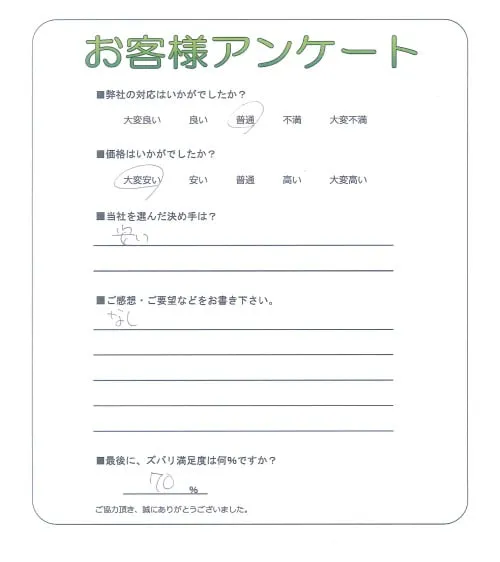 お客様アンケート
■弊社の対応はいかがでしたか？
大変良い 良い 普通 不満 大変不満
■価格はいかがでしたか？
大変安い 安い 普通 高い 大変高い
■当社を選んだ決め手は？
安い
■ご感想・ご要望などをお書き下さい。
なし
■最後に、ズバリ満足度は何%ですか？
70 %
ご協力頂き、誠にありがとうございました。